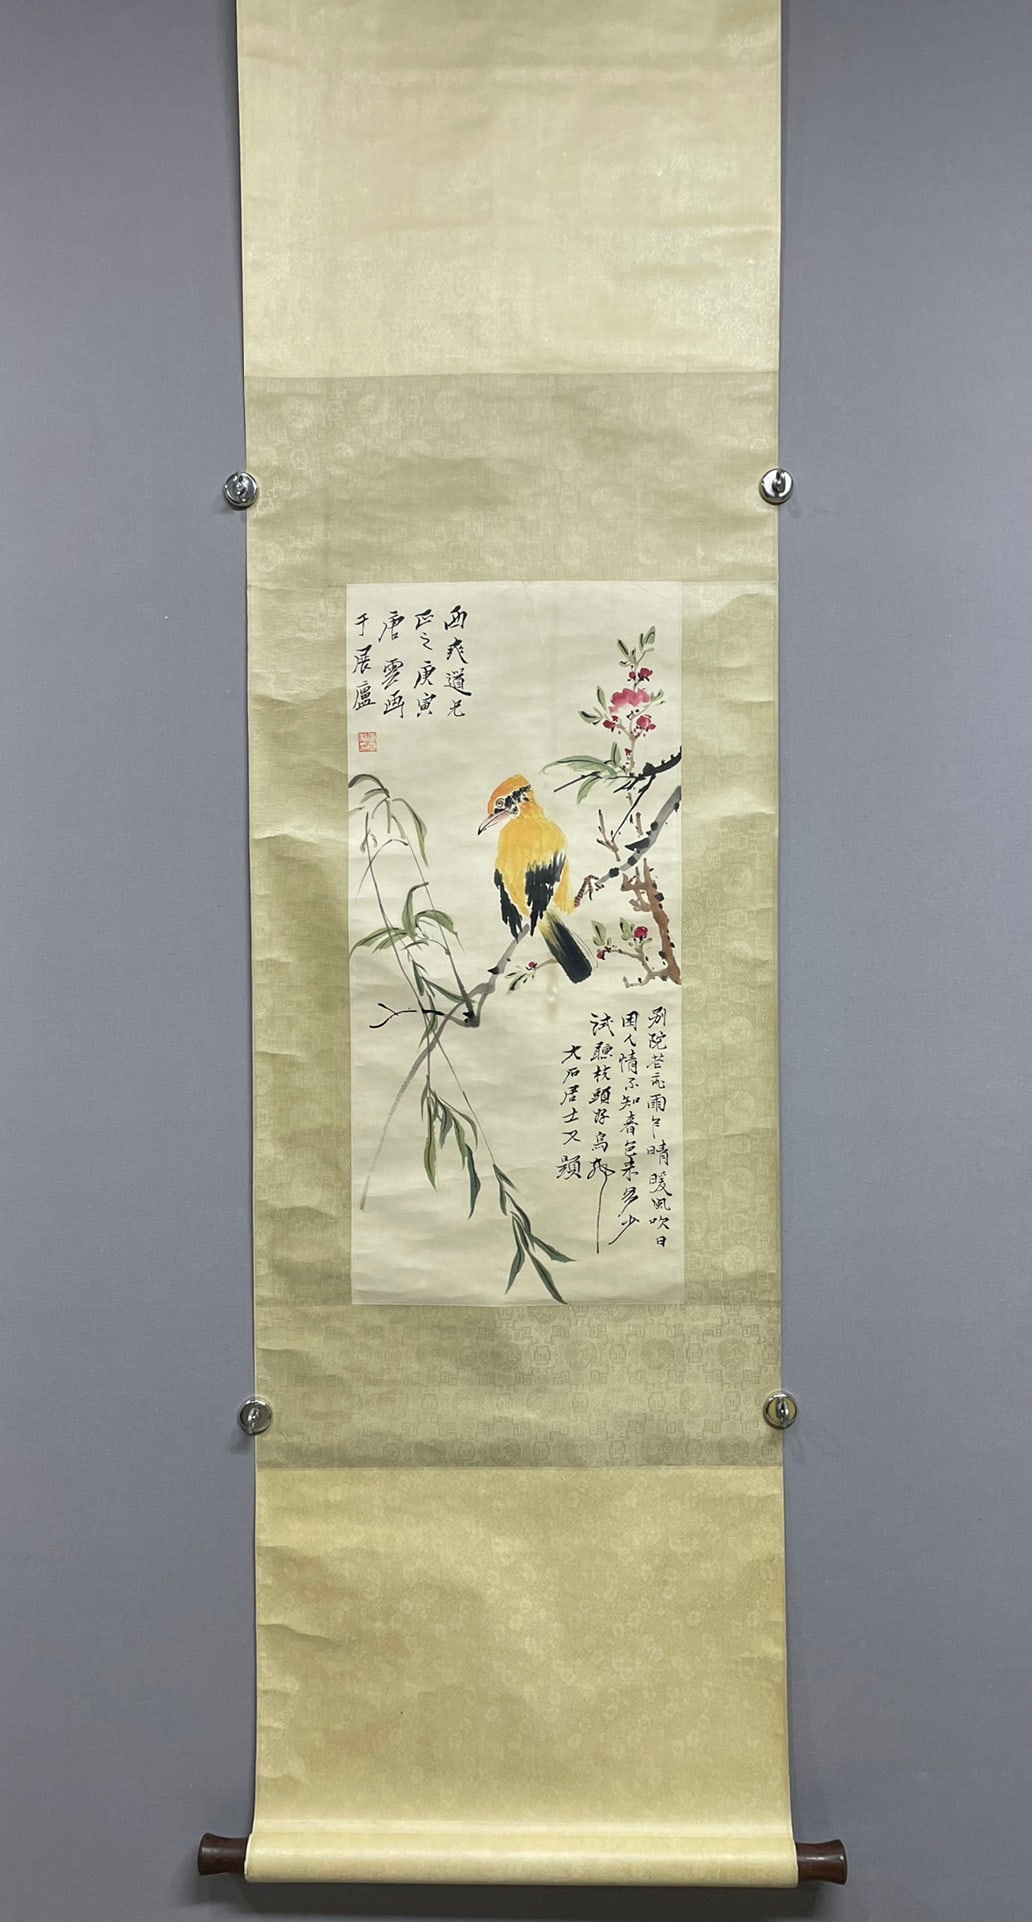 西爽道兄
正之庚寅
唐雲画
于展廬
别院苔雨乍晴暖風吹日
困人情不知春色来多少
試聽枝頭好鳥
大石居士又題